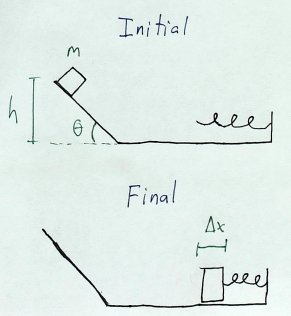 Initial
m
h
θ
Final
Δx